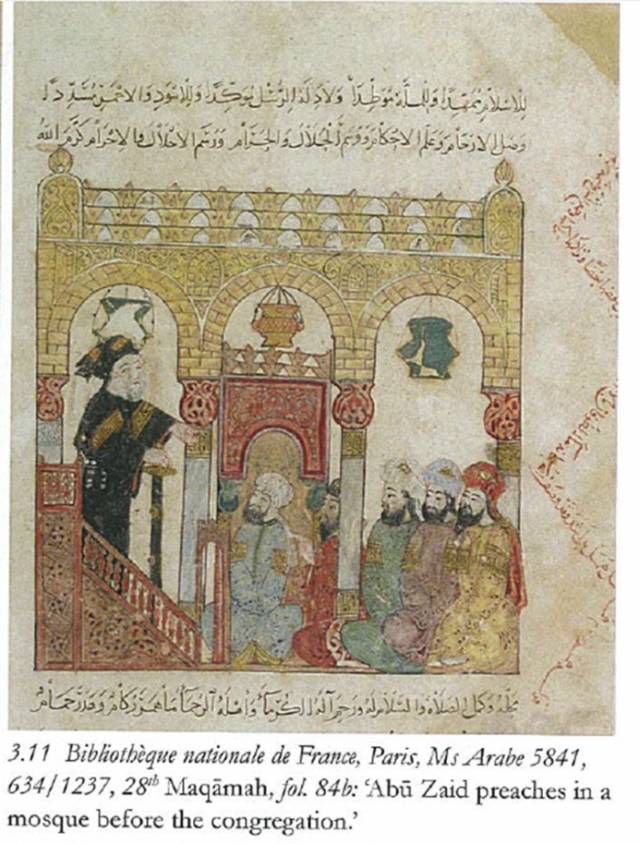 للاسلام ممهدا وللملة موطدا ولادلة الرسل موكدا وللاسود والاحمر مسددا
وصل الارحام وعلم الاحكام ووسم الحلال والحرام ورسم الاحلال والاحرام كرم الله
محله وكمل الصلاة والسلام له ورحم آله الكرماء واهله الرحماء ما همر ركام وهدر حمام
3.11 Bibliothèque nationale de France, Paris, Ms Arabe 5841,
634/1237, 28th Maqāmah, fol. 84b: ‘Abū Zaid preaches in a
mosque before the congregation.’